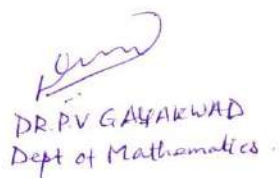 DR. PV GAYAKWAD
Dept of Mathematics.